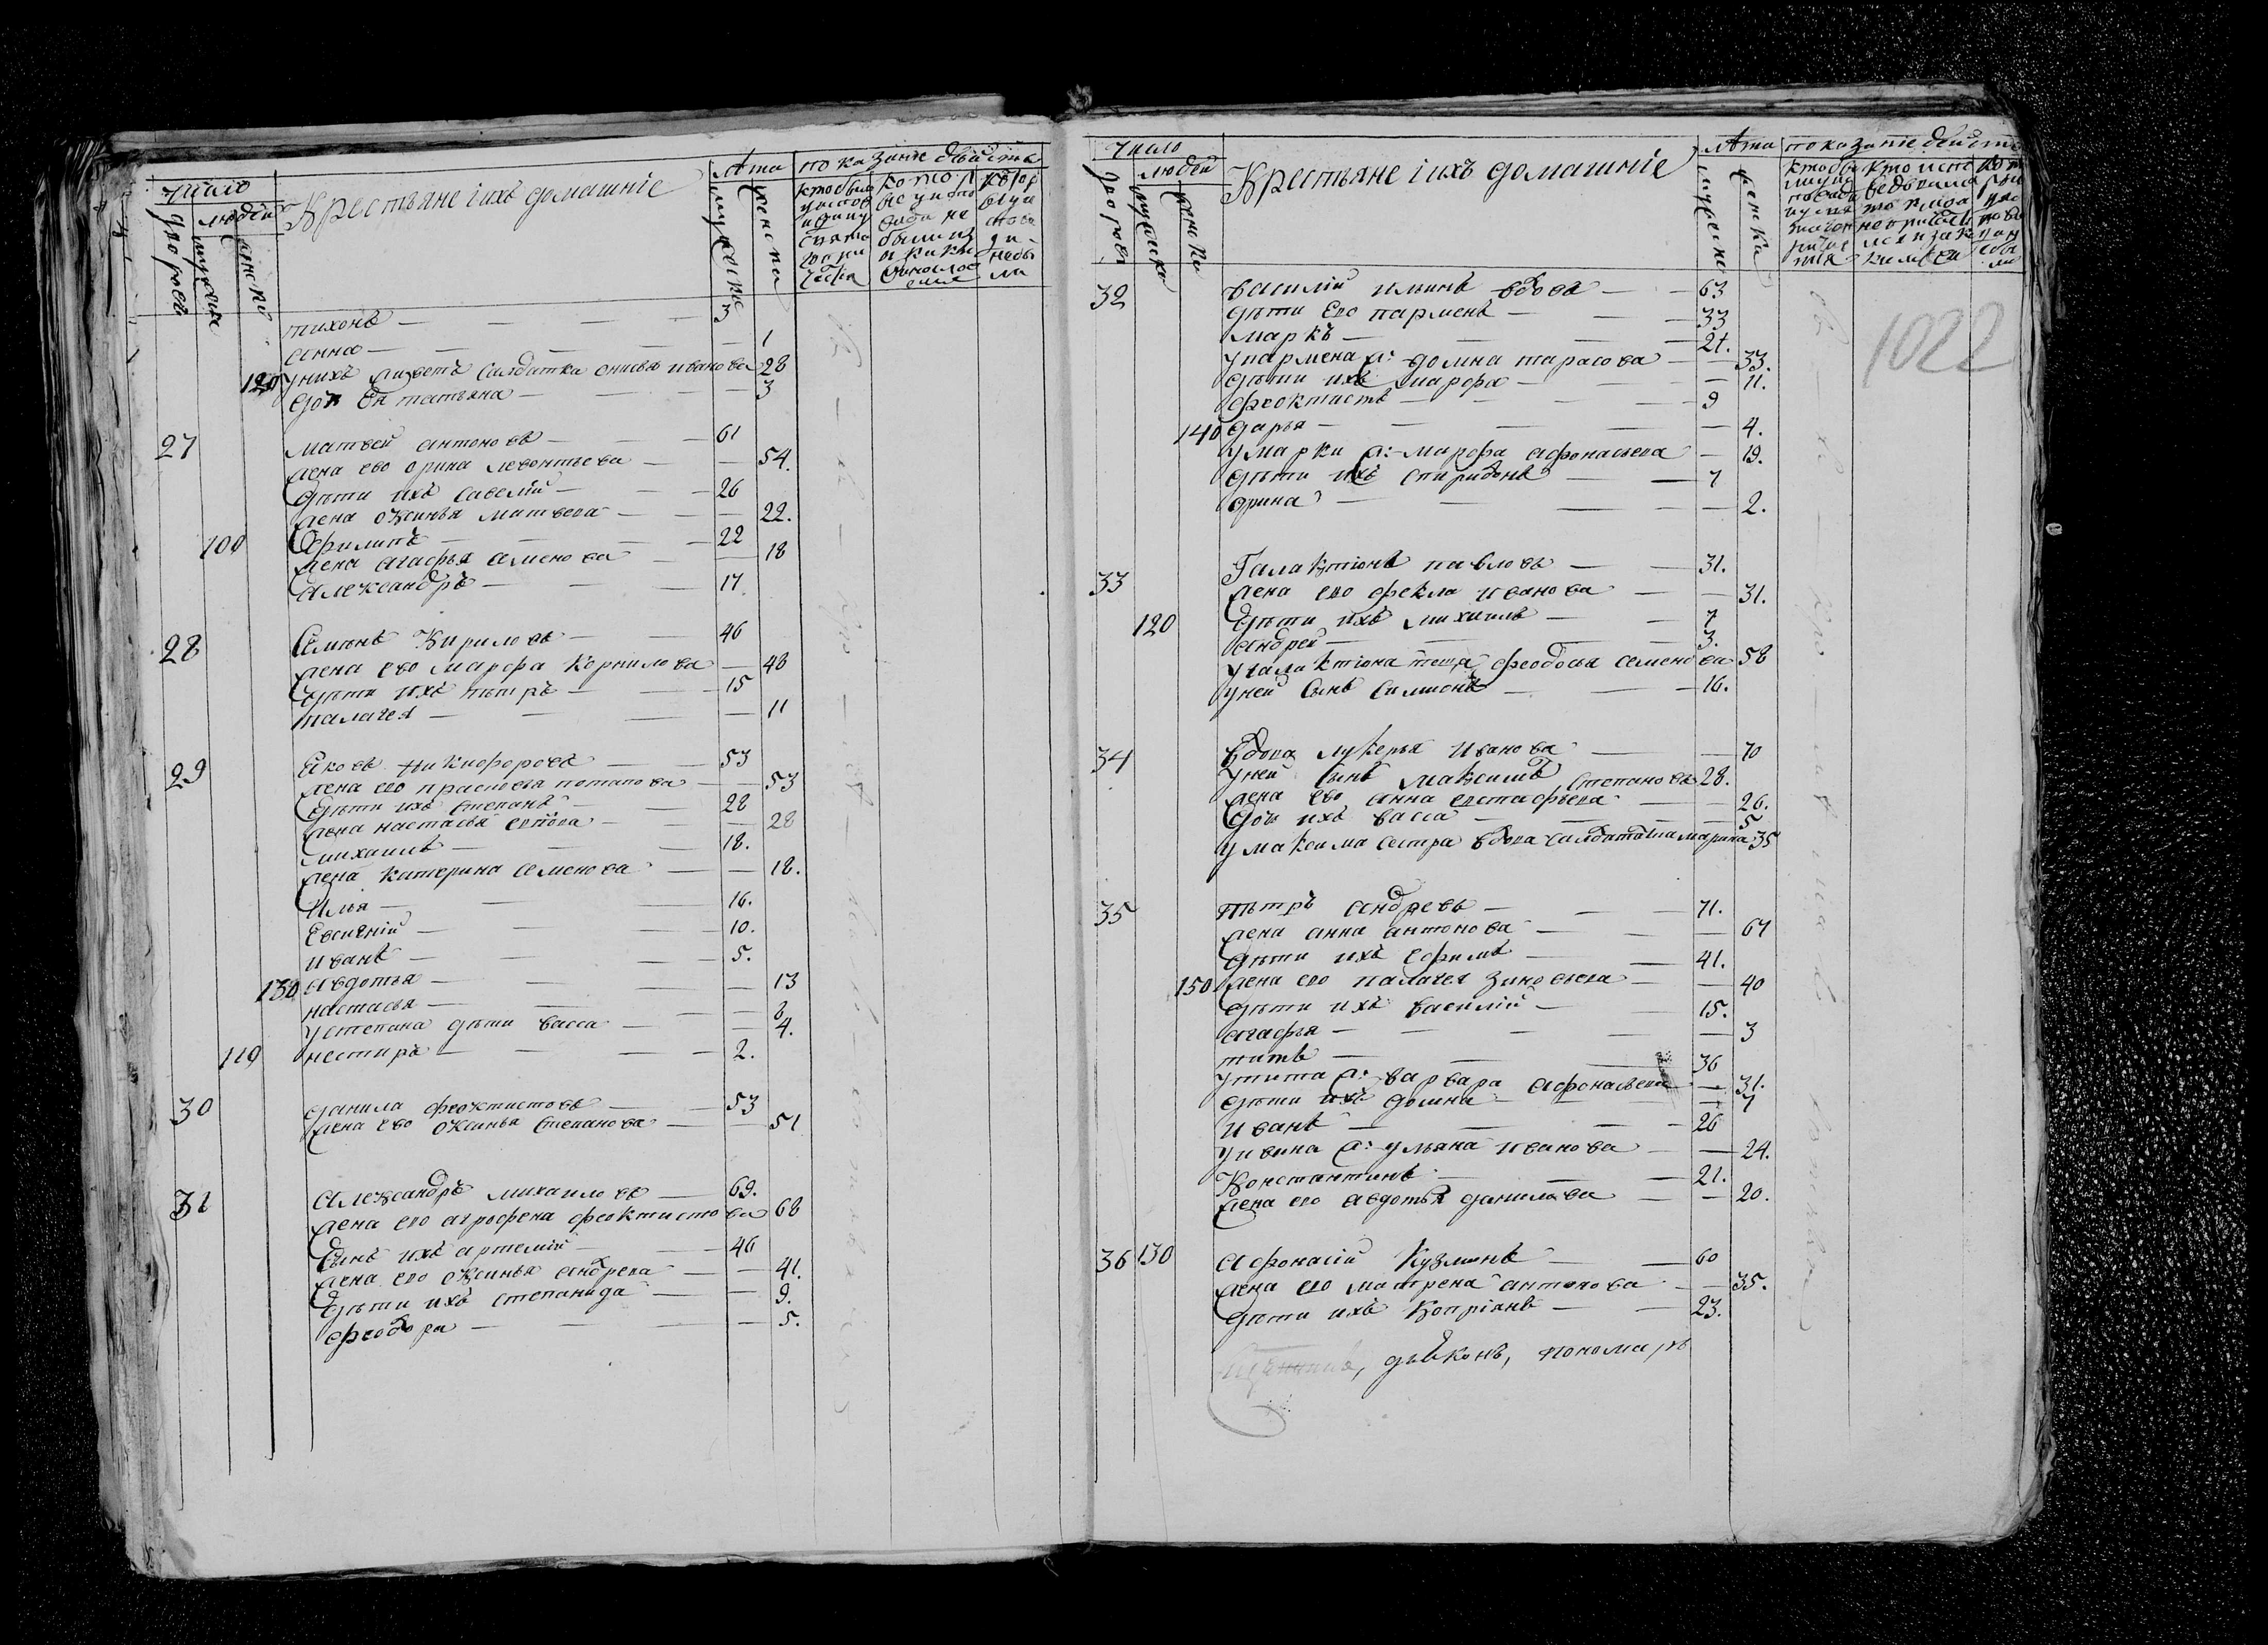 число
людей
дворовъ
мужеска
женска
Крестьяне ихъ домашніе
лѣта
мужеска
женска
показаніе дѣйства
тихонъ — 3
анна — 1
120 у нихъ живетъ салдатка анисья иванова 28
дочь ея татьяна — 3
27 матвей антоновъ — 61
жена ево орина левонтьева — 54.
дѣти ихъ савелій — 26
жена оксинья матвеева — 22.
100 филипъ — 22
жена агафья семенова — 18
александръ — 17.
28 семионъ Кириловъ — 46
жена ево марфа Корнилова — 48
дѣти ихъ петръ — 15
палагея — 11
29 яковъ никифоровъ — 53
жена ево прасковья потапова — 53
дѣти ихъ степанъ — 28
жена настасья — 28
михаилъ — 18.
жена катерина семенова — 18.
илья — 16.
Евсигній — 10.
иванъ — 5.
130 авдотья — 13
настасья — 8
у степана дѣти васса — 4.
110 нестиръ — 2.
30 данила феоктистовъ — 53
жена ево оксинья степанова — 51
31 александръ михаиловъ — 69.
жена ево агрофена феоктистова 68
сынъ ихъ артемій — 46
жена ево оксинья андреева — 41.
дѣти ихъ степанида — 9.
феодора — 5.
число
людей
дворовъ
мужеска
женска
Крестьяне ихъ домашніе
лѣта
мужеска
женска
показаніе дѣйств
1022
32 василій ильинъ вдовъ — 63
дѣти ево парменъ — 33
маркъ — 21.
у пармена ж: домна тарасова — 33.
дѣти ихъ марфа — 11.
феоктистъ — 9
140 дарья — 4.
у марки ж: марфа афонасьева — 19.
дѣти ихъ спиридонъ — 7
орина — 2.
33 Галактіонъ павловъ — 31.
жена ево фекла иванова — 31.
120 дѣти ихъ михаилъ — 7
андрей — 3.
у галактіона теща феодосья семенова 58
у ней сынъ симионъ — 16.
34 вдова лукерья иванова — 70
у ней сынъ максимъ степановъ 28.
жена ево анна евстафьева — 26.
дочь ихъ васса — 5
у максима сестра вдова салдатка марина 35
35 петръ андреевъ — 71.
жена анна антонова — 67
дѣти ихъ ефимъ — 41.
150 жена ево палагея зиновьева — 40
дѣти ихъ василій — 15.
агафья — 3
титъ — 36
у тита ж: варвара афонасьева — 31.
дѣти ихъ домна — 7
иванъ — 26
у ивана ж: ульяна иванова — 24.
Константинъ — 21.
жена ево авдотья данилова — 20.
36 130 афонасій Кузминъ — 60
жена ево матрена антонова — 35.
дѣти ихъ Копріянъ — 23.
дьяконъ, пономарь